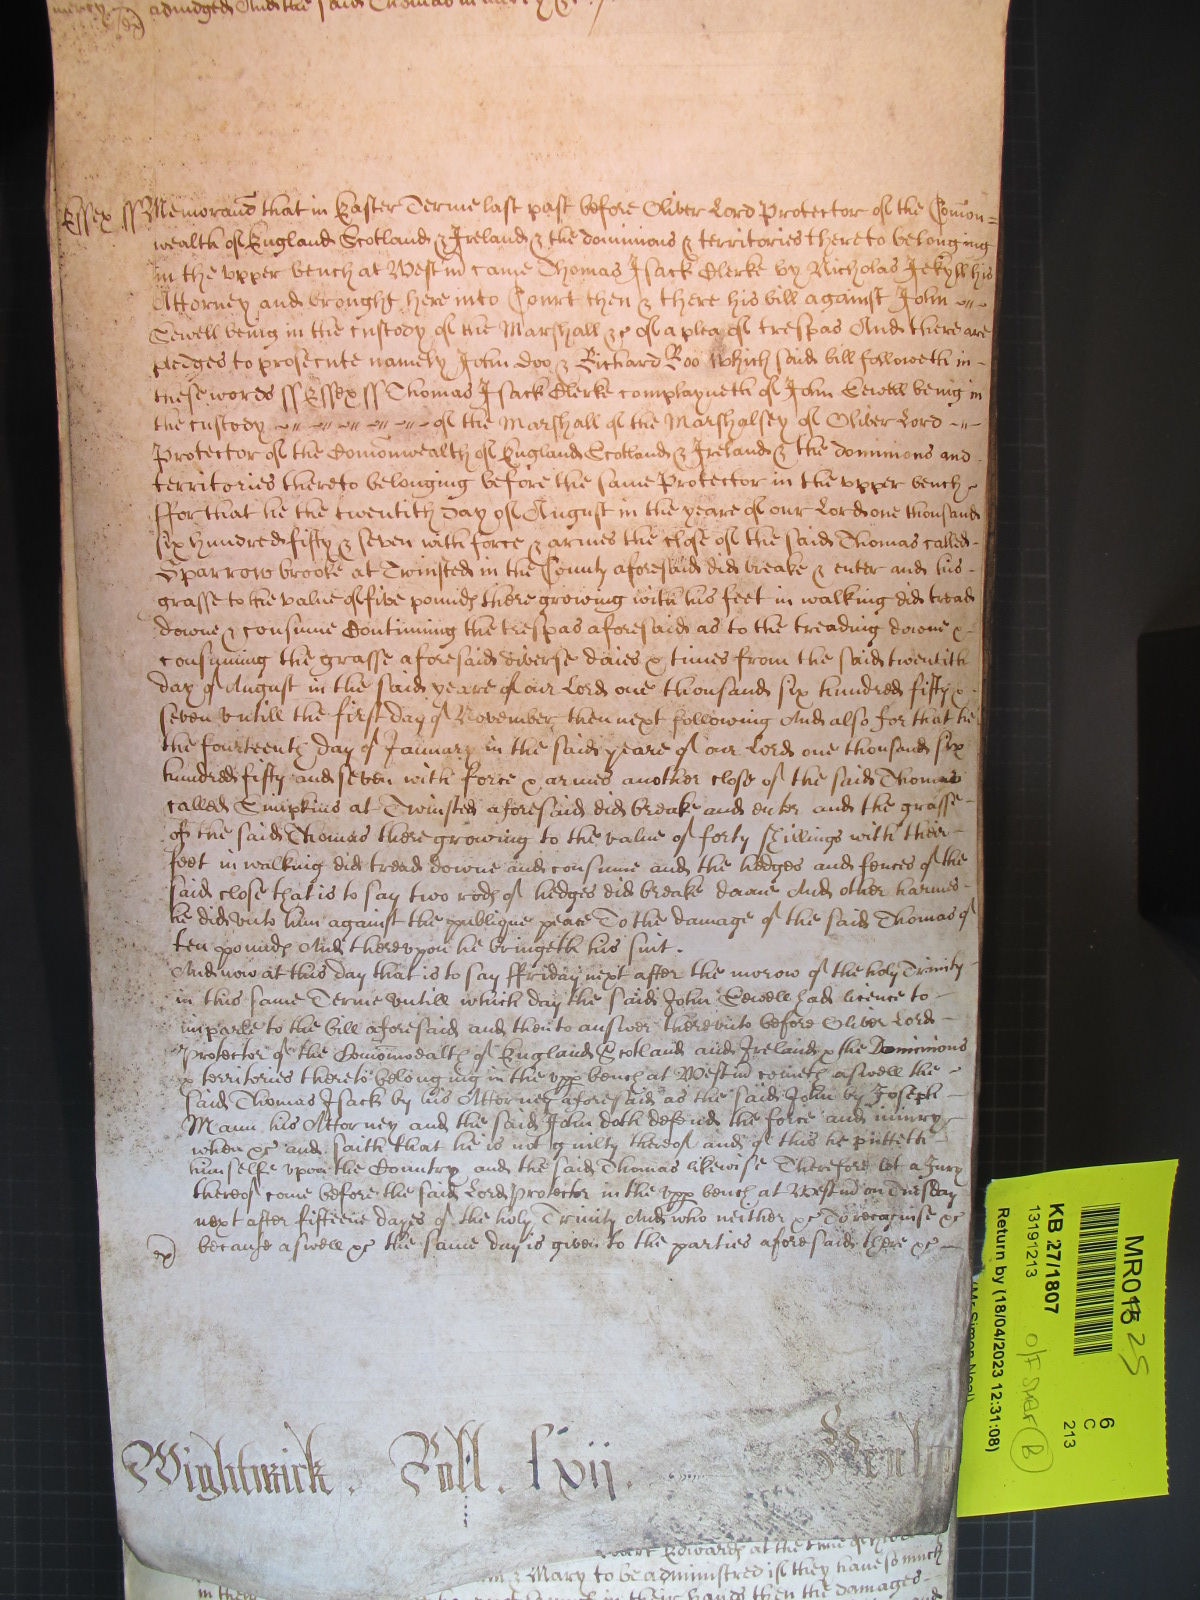 adiudged And the said Thomas in mercy &c
Essex ss Memorand that in Easter Terme last past before Oliver Lord Protector of the Comon=
wealth of England Scotland & Ireland & the dominions & territories thereto belonging
in the upper bench at Westm came Thomas Isack Clerke by Nicholas Jekyll his
Attorney and brought here into Court then & there his bill against John
Sewell being in the custody of the Marshall &c of a plea of trespas And there are
pledges to prosecute namely John Doo & Richard Roo Which said bill followeth in
these words ss Essex ss Thomas Isack Clerke complayneth of John Sewell being in
the custody of the Marshall of the Marshalsey of Oliver Lord
Protector of the Comonwealth of England Scotland & Ireland & the dominions and
territories thereto belonging before the same Protector in the upper bench
ffor that he the twentith day of August in the yeare of our Lord one thousand
six hundred fifty & seven with force & armes the close of the said Thomas called
Sparrow brooke at Twinsted in the County aforesaid did breake & enter and his
grasse to the value of five pounds there growing with his feet in walking did tread
downe & consume Continuing the trespas aforesaid as to the treading downe &
consuming the grasse aforesaid diverse daies & times from the said twentith
day of August in the said yeare of our Lord one thousand six hundred fifty &
seven untill the first day of November then next following And also for that he
the fourteenth day of January in the said yeare of our Lord one thousand six
hundred fifty and seven with force & armes another close of the said Thomas
called Simpkins at Twinsted aforesaid did breake and enter and the grasse
of the said Thomas there growing to the value of forty shillings with their
feet in walking did tread downe and consume and the hedges and fences of the
said close that is to say two rods of hedges did breake downe And other harmes
he did unto him against the publique peace To the damage of the said Thomas of
ten pounds And thereupon he bringeth his suit.
And now at this day that is to say ffriday next after the morow of the holy Trinity
in this same Terme untill which day the said John Sewell had licence to
imparle to the bill aforesaid and then to answer thereunto before Oliver Lord
Protector of the Comonwealth of England Scotland and Ireland & the Dominions
& territories thereto belonging in the upp bench at Westm cometh aswell the
said Thomas Isack by his Attorney aforesaid as the said John by Joseph
Mann his Attorney and the said John doth defend the force and iniury
when &c and saith that he is not guilty thereof and of this he putteth
himselfe upon the Country and the said Thomas likewise Therefore let a Jury
thereof come before the said Lord Protector in the upp bench at Westm on Tuesday
next after fifteene dayes of the holy Trinity And who neither &c To recognise &c
because aswell &c the same day is given to the parties aforesaid there &c
Wightwick. Roll. lxii.
Edwards at the time of
& Mary to be administred if they have so much
in their hands then the damages
MR018 25
6
C
213
KB 27/1807
13191213
Return by (18/04/2023 12:31:08)
(Mr Simon Neal)
B